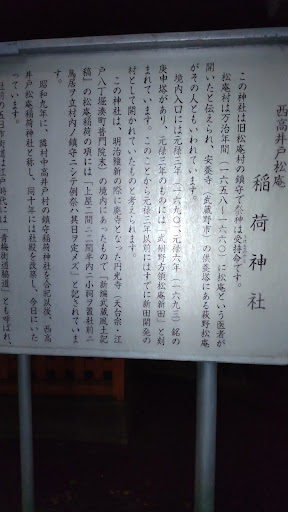 西高井戸松庵
稲荷神社
この神社は旧松庵村の鎮守で祭神は受持命です。
松庵村は万治年間（一六五八～一六六〇）に松庵という医者が
開いたと伝えられ、安養寺（武蔵野市）の供養塔にある荻野松庵
がその人ともいわれています。
境内入口には元禄三年（一六九〇）、元禄六年（一六九三）銘の
庚申塔があり、元禄三年のものには「武州野方領松庵新田」と刻
まれています。このことから元禄三年以前にはすでに新田開発の
村として開かれていたものと考えられます。
この神社は、明治維新の際に廃寺となった円光寺（天台宗・江
戸八丁堀湊町普門院末）の境内にあったもので「新編武蔵風土記
稿」の松庵稲荷の項には「上屋二間二二間半内二小祠ヲ置社前二
鳥居ヲ立村内ノ鎮守ニシテ例祭ハ其日ヲ定メズ」と記されていま
す。
昭和九年に、隣村中高井戸村の鎮守稲荷神社を合祀以後、西高
井戸松庵稲荷神社と称し、同十年には社殿を改築し、今日にいた
っています。
社前の五日市街道は江戸時代には「青梅街道脇道」とも呼ばれ、